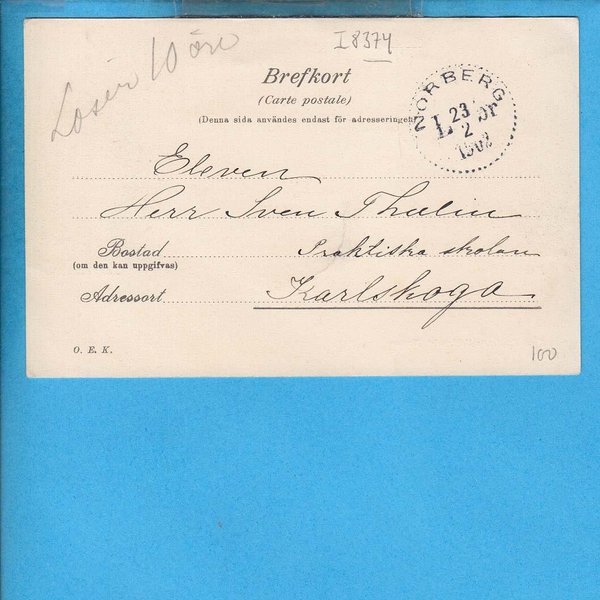 I8374
Lösen 10 öre
Brefkort
(Carte postale)
(Denna sida användes endast för adresseringen
NORBERG
23
2
1902
Eleven
Herr Sven Thelin
Bostad Praktiska skolan
(om den kan uppgifvas)
Adressort Karlskoga
O. E. K.
100